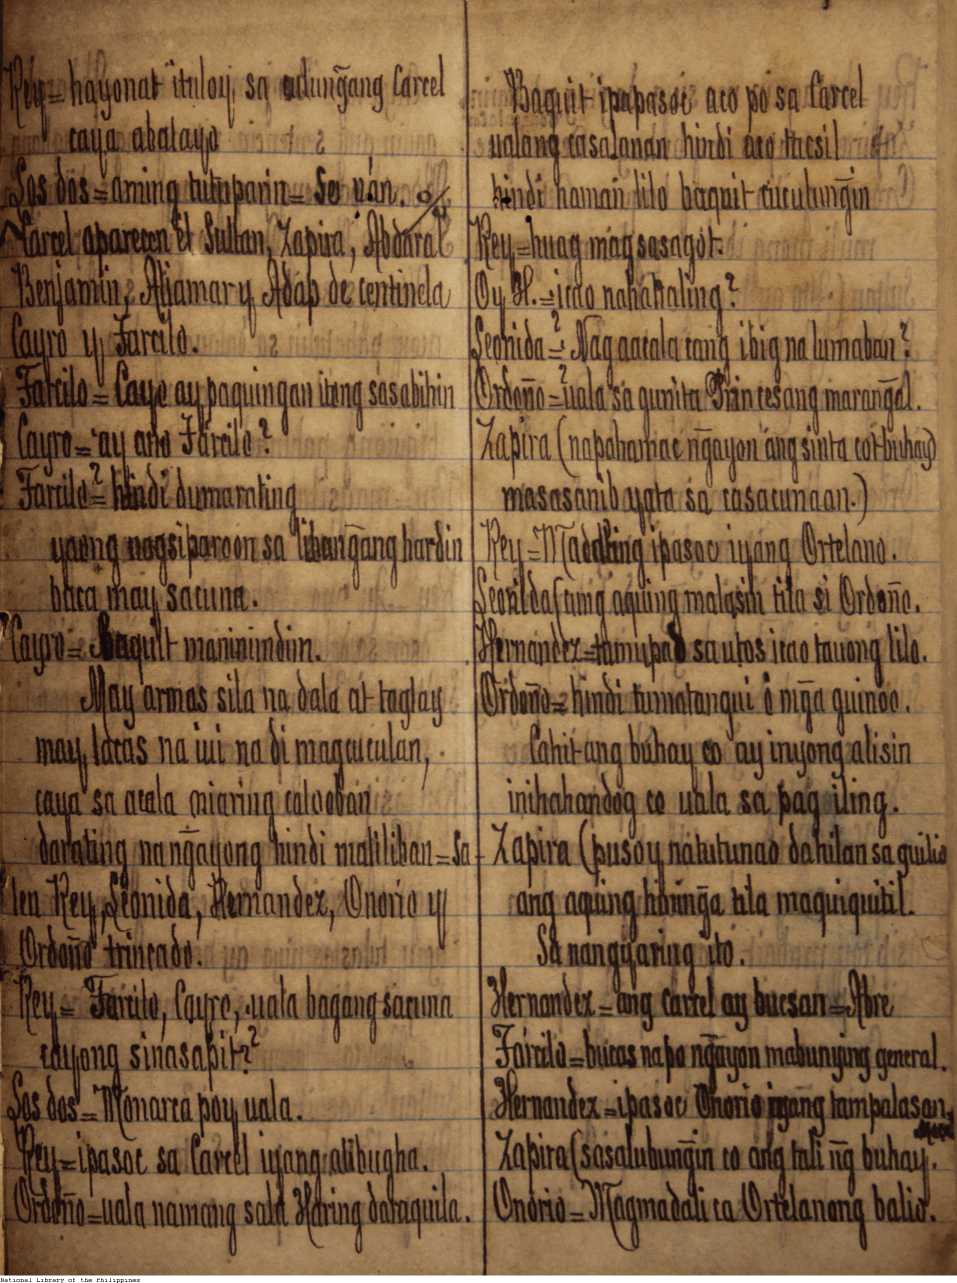 Rey = hayonat ituloy, sa adungang Carcel
caya abalayo
Los dos = aming tutuparin = Se ván.
Carcel aparecen El Sultan, Zapira, Abdaral
Benjamin, Aljamar y Adap de centinela
Cayro y Farcilo.
Farcilo = Cayro ay paquingan iteng sasabihin
Cayro = ay ano Farcilo?
Farcilo = hindi dumarating
yaong nagsiparoon sa libangang hardin
baca may sacuna.
Cayro = Baquit maninimdim.
May armas sila na dala at taglay
may lacas na iui na di magagculan,
caya sa acala niaring calooban
darating nangayong hindi maliliban = Sa-
len Rey, Leonida, Hernandez, Onorio y
Ordoño trincado.
Rey = Farcilo, Cayro, uala bagang sacuna
cayong sinasapit?
Los dos = Monarca poy uala.
Rey = ipasoc sa Carcel iyang alibugha.
Ordoño = uala namang sala Haring dataquila.
Baquit ipapasoc aco po sa Carcel
ualang casalanan hindi aco tacsil
hindi naman lilo baquit cuculungin
Rey = huag mag sasagot.
Oy H. = icao nahahaling?
Leonida = Nag aacala cang ibig na lumaban?
Ordoño = uala sa gunita Princesang marangal.
Zapira (napahamac ngayon ang sinta co't buhay)
masasanib yata sa casacunaan.)
Rey = Madaling ipasoc iyang Ortelano.
Leonida (ang aquing malasin tila si Ordoño.
Hernandez = tumupad sa utos icao tauong lilo.
Ordoño = hindi tumatangui ó mga guinoo.
Cahit ang buhay co ay inyong alisin
inihahandog co uala sa pag iling.
Zapira (pusoy natutunao dahilan sa guilio
ang aquing hininga tila maquiquitil.
Sa nangyaring ito.
Hernandez = ang carcel ay bucsan = Abre
Farcilo = bucas na po ngayon mabunying general.
Hernandez = ipasoc Onorio iyang tampalasan,
Zapira (sasalubungin co ang tali ng buhay.
Onorio = Magmadali ca Ortelanong balio.
National Library of the Philippines